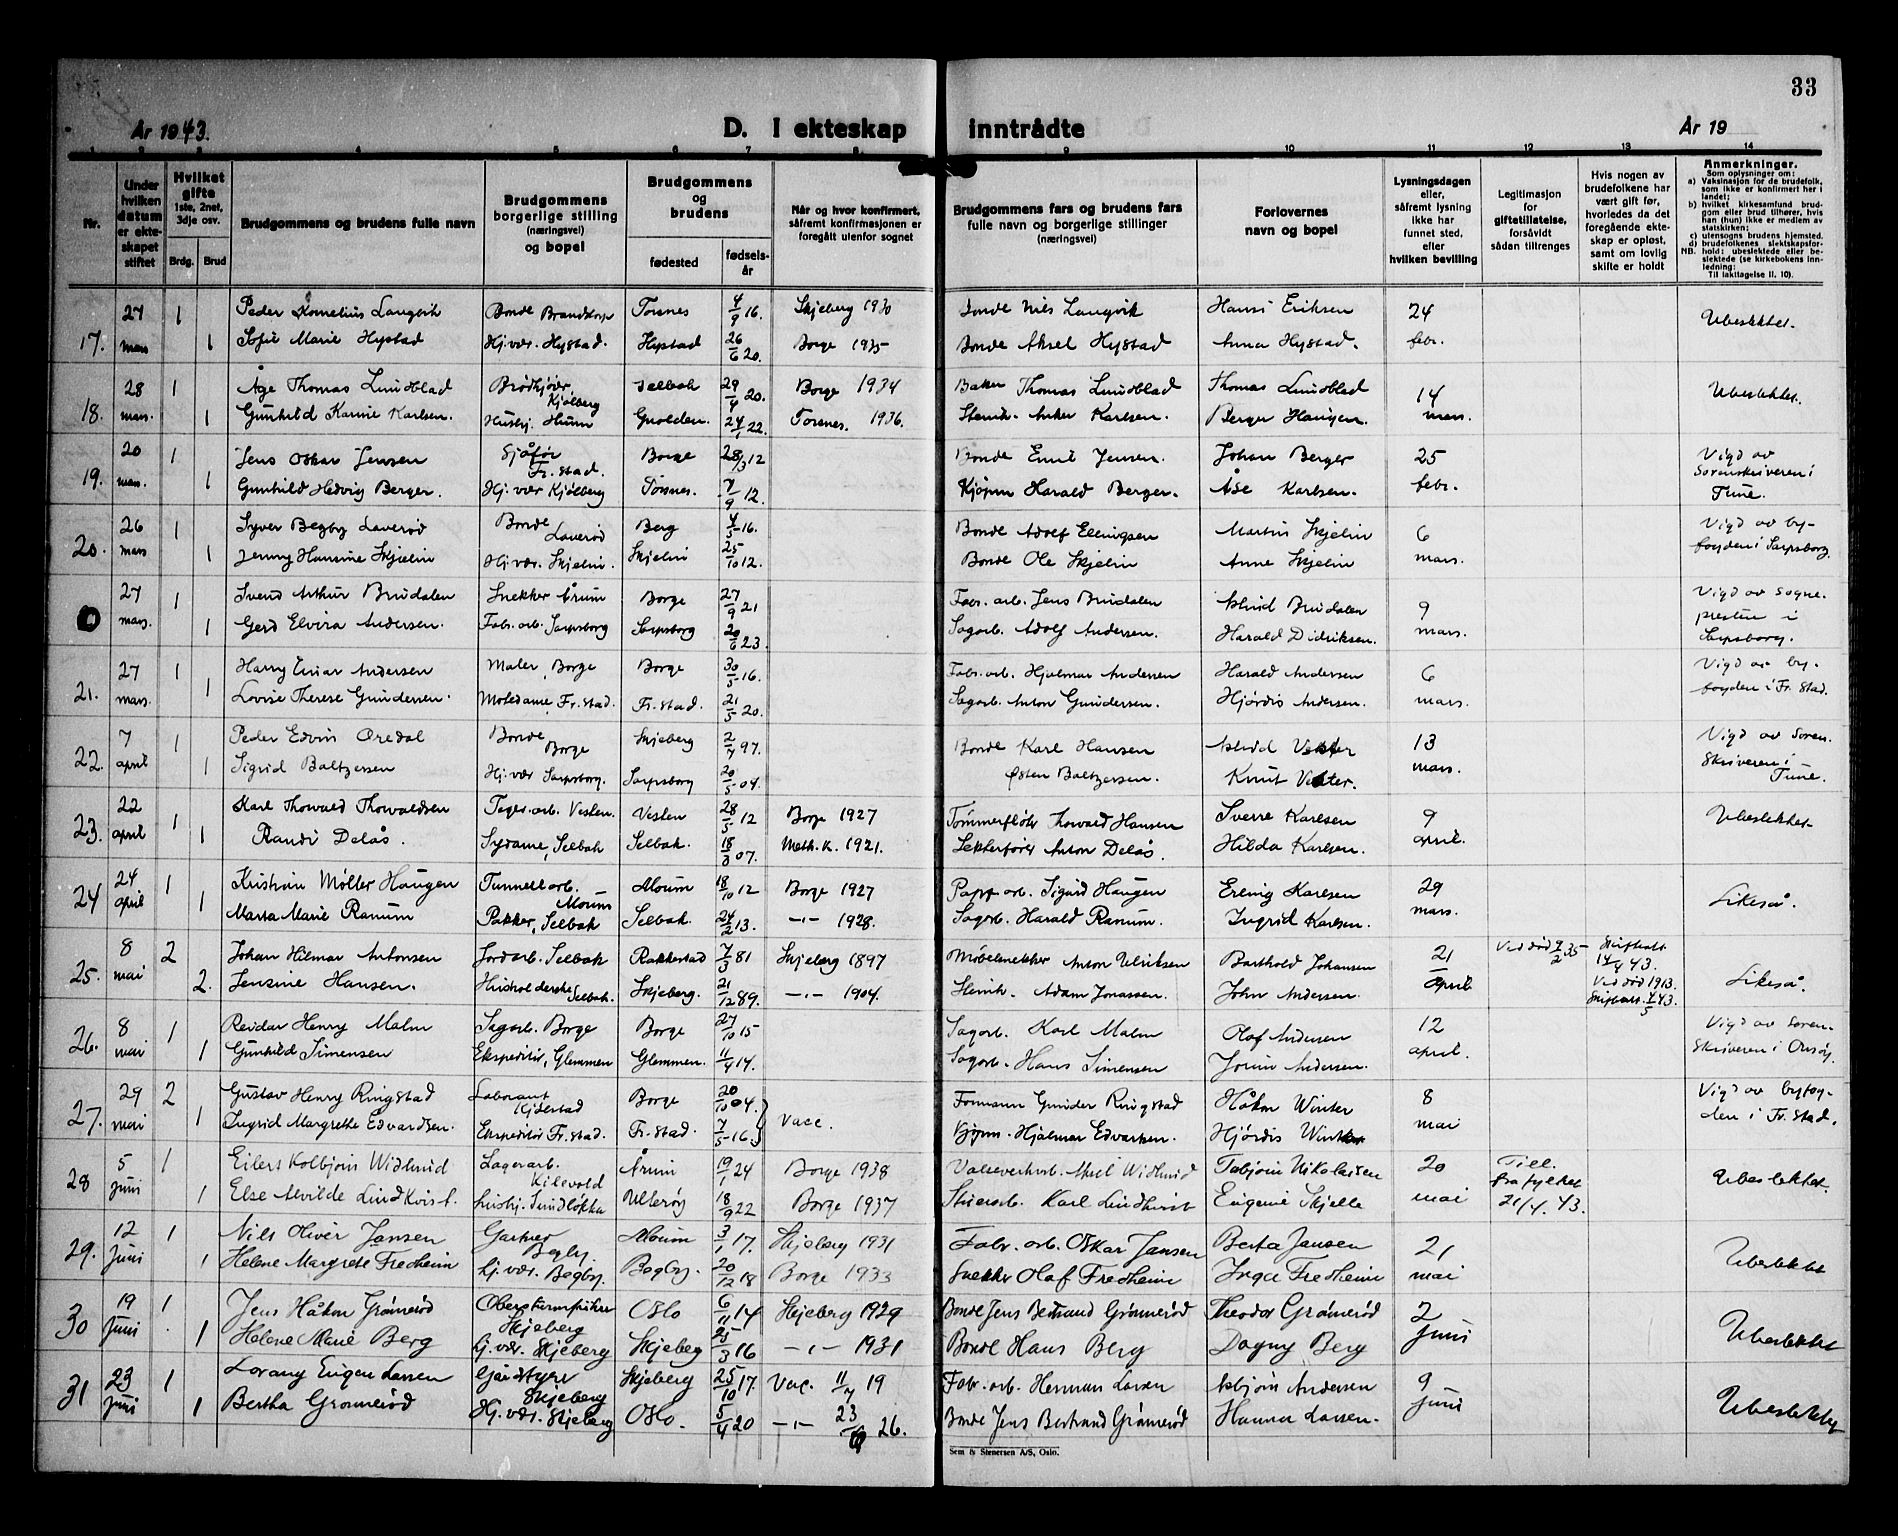 33
År 1943.
D. I ekteskap inntrådte
År 19
1 2 3 4 5 6 7 8 9 10 11 12 13 14
Nr.
Under hvilken datum er ekteskapet stiftet
Hvilket gifte 1ste, 2net, 3dje osv.
Brdg. Brud
Brudgommens og brudens fulle navn
Brudgommens borgerlige stilling (næringsvei) og bopel
Brudgommens og brudens
fødested
fødselsår
Når og hvor konfirmert, såfremt konfirmasjonen er foregått utenfor sognet
Brudgommens fars og brudens fars fulle navn og borgerlige stillinger (næringsvei)
Forlovernes navn og bopel
Lysningsdagen eller, såfremt lysning ikke har funnet sted, efter hvilken bevilling
Legitimasjon for giftetillatelse, forsåvidt sådan tiltrenges
Hvis nogen av brudefolkene har vært gift før, hvorledes da det foregående ekteskap er opløst, samt om lovlig skifte er holdt
Anmerkninger.
Som oplysninger om:
a) Vaksinasjon for de brudefolk, som ikke er konfirmert her i landet;
b) hvilket kirkesamfund brudgom eller brud tilhører, hvis han (hun) ikke er medlem av statskirken;
c) utensogns brudens hjemsted.
d) brudefolkenes slektskapsforhold: ubeslektede eller beslektede (se kirkebokens innledning:
NB. Til iakttagelse II. 10).
17. 27 mars 1 Peder Kornelius Langvik Bonde Brandstorp Torsnes 4/9 16. Skjeberg 1930 Bonde Nils Langvik Hans Eriksen 24 febr. Ubeslektet.
1 Sofie Marie Hystad Hj.vær. Hystad. Hystad 26/6 20. Borge 1935 Bonde Aksel Hystad Anna Hystad.
18. 28 mars. 1 Åge Thomas Lundblad Brødkjører, Kjølberg Selbak 29/4 20. Borge 1934 Baker Thomas Lundblad Thomas Lundblad 14 mars. Ubeslektet.
1 Gunhild Karine Karlsen. Hushj. Hunn 24/1 22. Torsnes. 1936. Stenh. Anker Karlsen. Berger Haugen.
19. 20 mars. 1 Jens Oskar Jensen Sjåfør Fr.stad. Borge 28/3 12 Bonde Emil Jensen. Johan Berger 25 febr. Vigd av Sorenskriveren i Tune.
1 Gunhild Hedvig Berger. Hj.vær Kjølberg Torsnes. 7/9 12. Kjøpm Harald Berger. Åse Karlsen.
20. 26 mars 1 Syver Begby Laverød Bonde Laverød Berg 4/5 16. Bonde Adolf Ellingsen Martin Skjelin 6 mars. Vigd av byfogden i Sarpsborg.
1 Jenny Hansine Skjelin Hj.vær. Skjelin. Skjelin 25/10 12. Bonde Ole Skjelin Anne Skjelin
27 mars. 1 Svend Arthur Brudalen Snekker Årum Borge 27/9 21 Fabr.arb. Jens Brudalen Astrid Brudalen 9 mars. Vigd av Sognepresten i Sarpsborg.
1 Gerd Elvira Andersen. Fabr.arb. Sarpsborg Sarpsborg 20/6 23. Sagarb. Adolf Andersen. Harald Didriksen.
21. 27 mars. 1 Harry Einar Andersen Maler, Borge Borge 30/5 16. Fabr.arb. Hjalmar Andersen Harald Andersen 6 mars. Vigd av byfogden i Fr.stad.
1 Lovise Therese Gundersen. Motedame, Fr.stad. Fr.stad. 21/5 20. Sagarb. Anton Gundersen. Hjørdis Andersen.
22. 7 april 1 Peder Edvin Øredal Bonde, Borge Skjeberg 2/4 97. Bonde Karl Hansen Astrid Vester 13 mars. Vigd av Sorenskriveren i Tune.
1 Sigrid Baltzersen Hj.vær Sarpsborg. Sarpsborg 20/5 04. Østen Baltzersen. Knut Vester.
23. 22 april 1 Karl Thorvald Thorvaldsen Tegr.arb. Vesten. Vesten 28/5 12 Borge 1927 Tømmerfløter Thorvald Hansen Sverre Karlsen 9 april. Ubeslektet.
1 Randi Delås. Sydame, Selbak Selbak. 18/3 07. Meth.K. 1921. Lekterfører Anton Delås. Hilda Karlsen.
24 24 april 1 Kristian Møller Haugen Tunnellarb. Moum Moum 18/10 12 Borge 1927 Papp arb. Sigurd Haugen Erling Karlsen 29 mars. Likeså.
1 Marta Marie Ranum Pakker, Selbak Selbak. 24/2 13. -"- 1928. Sagarb. Harald Ranum. Ingrid Karlsen.
25. 8 mai 2 Johan Hilmar Antonsen Jordarb. Selbak Rakkestad 7/3 81 Skjeberg 1897 Møbelsnekker Anton Ulriksen Barthold Johansen 21 april Ved død 9/2 35 Skifteatt. 14/4 43. Likeså.
2. Jensine Hansen. Husholderske Selbak. Skjeberg. 21/12 89. -"- 1904. Stenh. Adam Jonassen. John Andersen. Ved død 1913. Skifteatt. 4/5 43.
26. 8 mai 1 Reidar Henry Malm Sagarb. Borge Borge 27/10 15 Sagarb. Karl Malm Olaf Andersen 12 april. Vigd av Sorenskriveren i Onsøy.
1 Gunhild Simensen Ekspeditør, Glemmen Glemmen. 11/4 14. Sagarb. Hans Simensen Jorun Andersen.
27. 29 mai 2 Gustav Henry Ringstad Laborant Borge 20/10 04. Vacc. Formann Gunder Ringstad Håkon Winter 8 mai Vigd av byfogden i Fr.stad.
1 Ingrid Margrethe Edvardsen. Ekspeditør Fr.stad. Fr.stad. 7/5 16. Kjøpm. Hjalmar Edvardsen. Hjørdis Winter
28 5 juni 1 Eilert Kolbjørn Widlund Lagerarb. Kilevold Årum 19/1 24 Borge 1938 Valseverksarb. Aksel Widlund Tobjørn Nikolaisen 20 mai Till. fra fylket 21/4. 43. Ubeslektet.
1 Else Alvilde Lindkvist. Hushj. Sundløkka Ullerøy 18/9 22 Borge 1937 Karl Lindkvist Eugenie Skjelle
29. 12 Juni 1 Nils Oliver Jansen Gartner Begby. Moum 3/1 17. Skjeberg 1931 Fabr. arb. Oskar Jansen Berta Jansen 21 mai Ubeslektet
1 Helene Margrete Fredheim Hj.vær. Begby. Begby. 20/12 18 Borge 1933 Snekker Olaf Fredheim Inga Fredheim
30 19 Juni 1 Jens Håkon Grømerød Skjeberg Oslo 6/11 14 Skjeberg 1929 Bonde Jens Bertrand Grømerød Theodor Grømerød 2 Juni Ubeslektet
1 Helene Marie Berg Hj.vær. Skjeberg Skjeberg 25/3 16 -"- 1931 Bonde Hans Berg Dagny Berg
31 23 Juni 1 Lorang Eugen Larsen Skjeberg Skjeberg 25/10 17. Vac. 11/7 19 Fabr. arb. Herman Larsen Asbjørn Andersen 9 Juni Ubeslektet
1 Bertha Grømerød Hj.vær. Skjeberg Oslo. 5/4 20 -"- 23/ 26. Bonde Jens Bertrand Grømerød Hanna Larsen.
Sem & Stenersen A/S, Oslo.